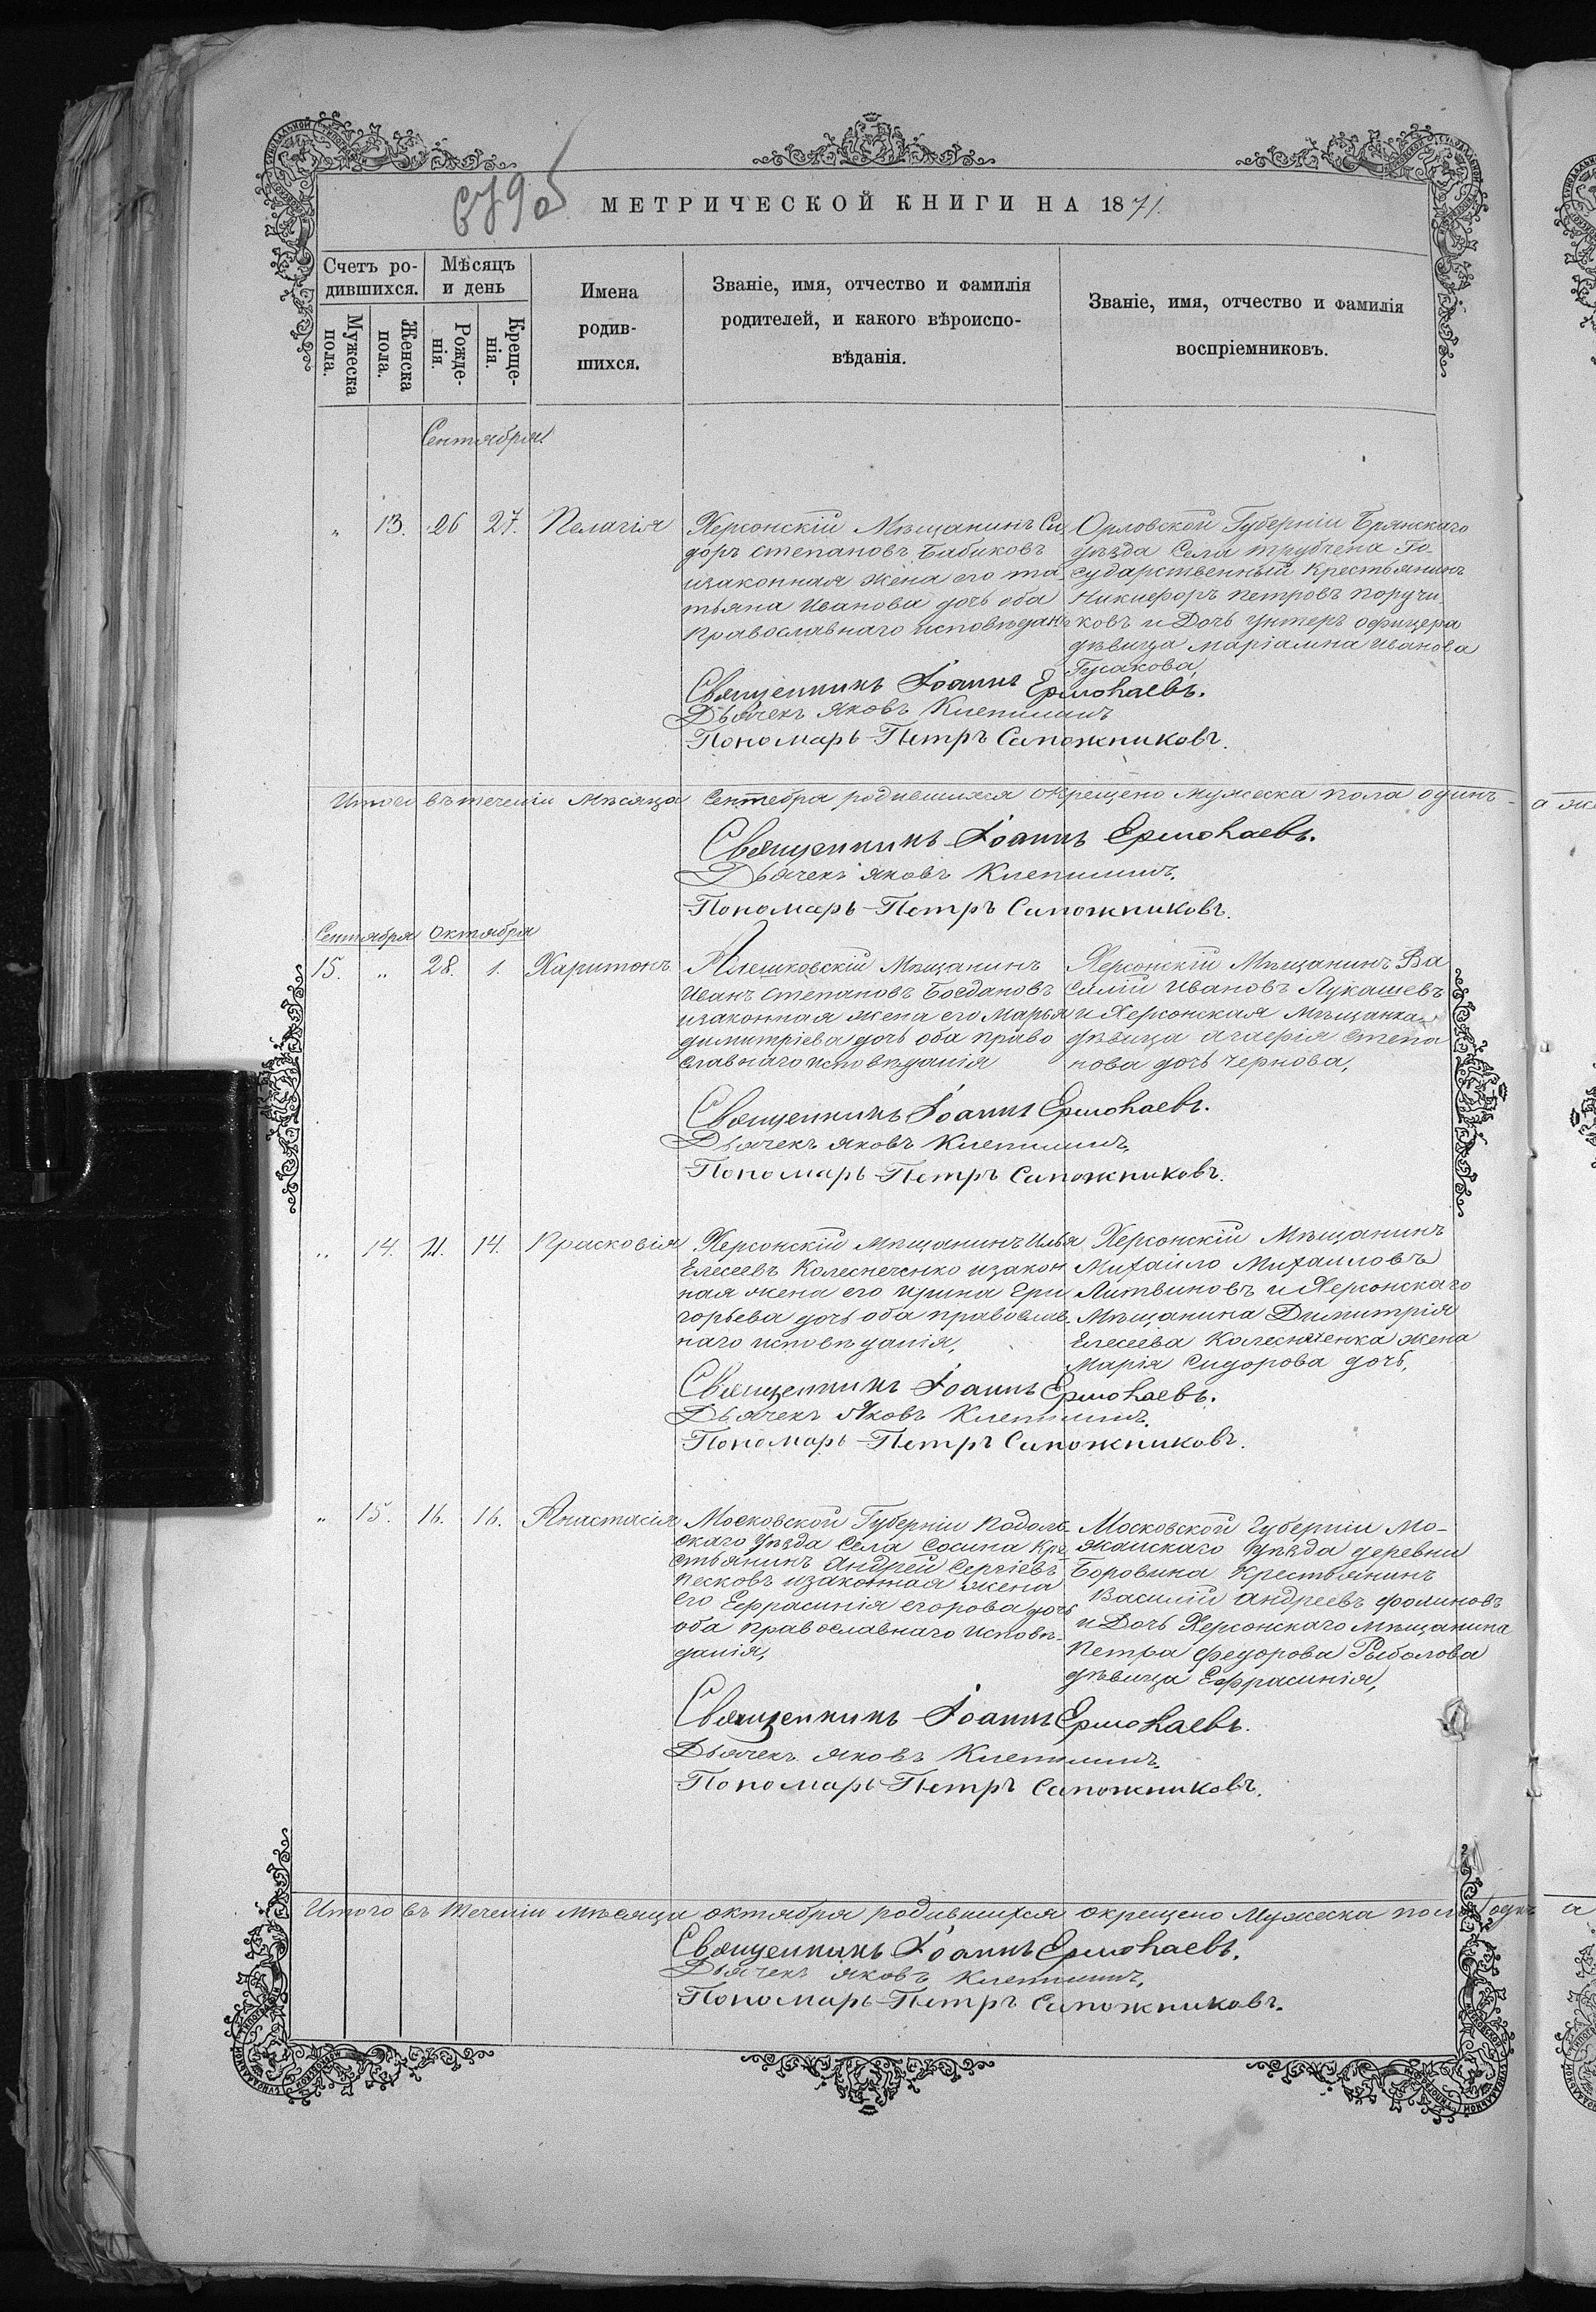 679об
МЕТРИЧЕСКОЙ КНИГИ НА 1871.
Счетъ ро-
дившихся.
Мѣсяцъ
и день
Мужеска
пола.
Женска
пола.
Рожде-
нія.
Креще-
нія.
Имена
родив-
шихся.
Званіе, имя, отчество и фамилія
родителей, и какого вѣроиспо-
вѣданія.
Званіе, имя, отчество и фамилія
воспріемниковъ.
Сентября.
„ 13. 26 27. Пелагія
Херсонскій Мѣщанинъ Си-
доръ Степановъ Бабиковъ
изаконная жена его та-
тьяна Иванова дочь оба
Православнаго исповѣдан
Орловской Губерніи Брянскаго
уѣзда Села трубчена Го-
сударственный Крестьянинъ
Никифоръ Петровъ Поручи-
ковъ и Дочь унтеръ офицера
дѣвица маріамна Иванова
Гусакова,
Священникъ Іоаннъ Ермолаевъ.
Дьячекъ Яковъ
Пономарь Петръ Сапожниковъ.
Итого въ теченіи мѣсяца Сентебра родившихся окрещено мужеска пола одинъ - а
Священникъ Іоаннъ Ермолаевъ.
Дьячекъ Яковъ
Пономарь Петръ Сапожниковъ.
Сентября Октября
15. „ 28. 1. Харитонъ.
Алешковскій Мѣщанинъ
Иванъ Степановъ Богдановъ
изаконная жена его Марья
димитріева дочь оба право
славнаго исповѣданія
Херсонскій Мѣщанинъ Ва
силій Ивановъ Лукашевъ
и Херсонская Мѣщанка
дѣвица агафія Степа
нова дочь Чернова,
Священникъ Іоаннъ Ермолаевъ.
Дьячекъ Яковъ
Пономарь Петръ Сапожниковъ.
„ 14. 11. 14. Прасковія
Херсонскій мѣщанинъ Илья
Елесеевъ Колесниченко изакон
ная жена его Ирина Гри
горьева дочь оба православ-
наго исповѣданія,
Херсонскій Мѣщанинъ
Михайло Михаиловъ
Литвиновъ и Херсонскаго
Мѣщанина Димитрія
Елесеева Колесниченка жена
Марія Сидорова дочь,
Священникъ Іоаннъ Ермолаевъ.
Дьячекъ Яковъ
Пономарь Петръ Сапожниковъ.
„ 15. 16. 16. Анастасія
Московской Губерніи Подоль-
скаго уѣзда Села Сосина Кре
стьянинъ Андрей Сергіевъ
Песковъ изаконная жена
его Ефрасинія егорова дочь
оба Православнаго Исповѣ-
данія,
Московской Губерніи Мо-
жайскаго уѣзда деревни
Боровина Крестьянинъ
Василій андреевъ Фоминовъ
и Дочь Херсонскаго мѣщанина
Петра Федорова Рыболова
дѣвица Ефрасинія,
Священникъ Іоаннъ Ермолаевъ.
Дьячекъ Яковъ
Пономарь Петръ Сапожниковъ.
Итого въ теченіи мѣсяца октября родившихся окрещено Мужеска пола одинъ а
Священникъ Іоаннъ Ермолаевъ.
Дьячекъ Яковъ
Пономарь Петръ Сапожниковъ.